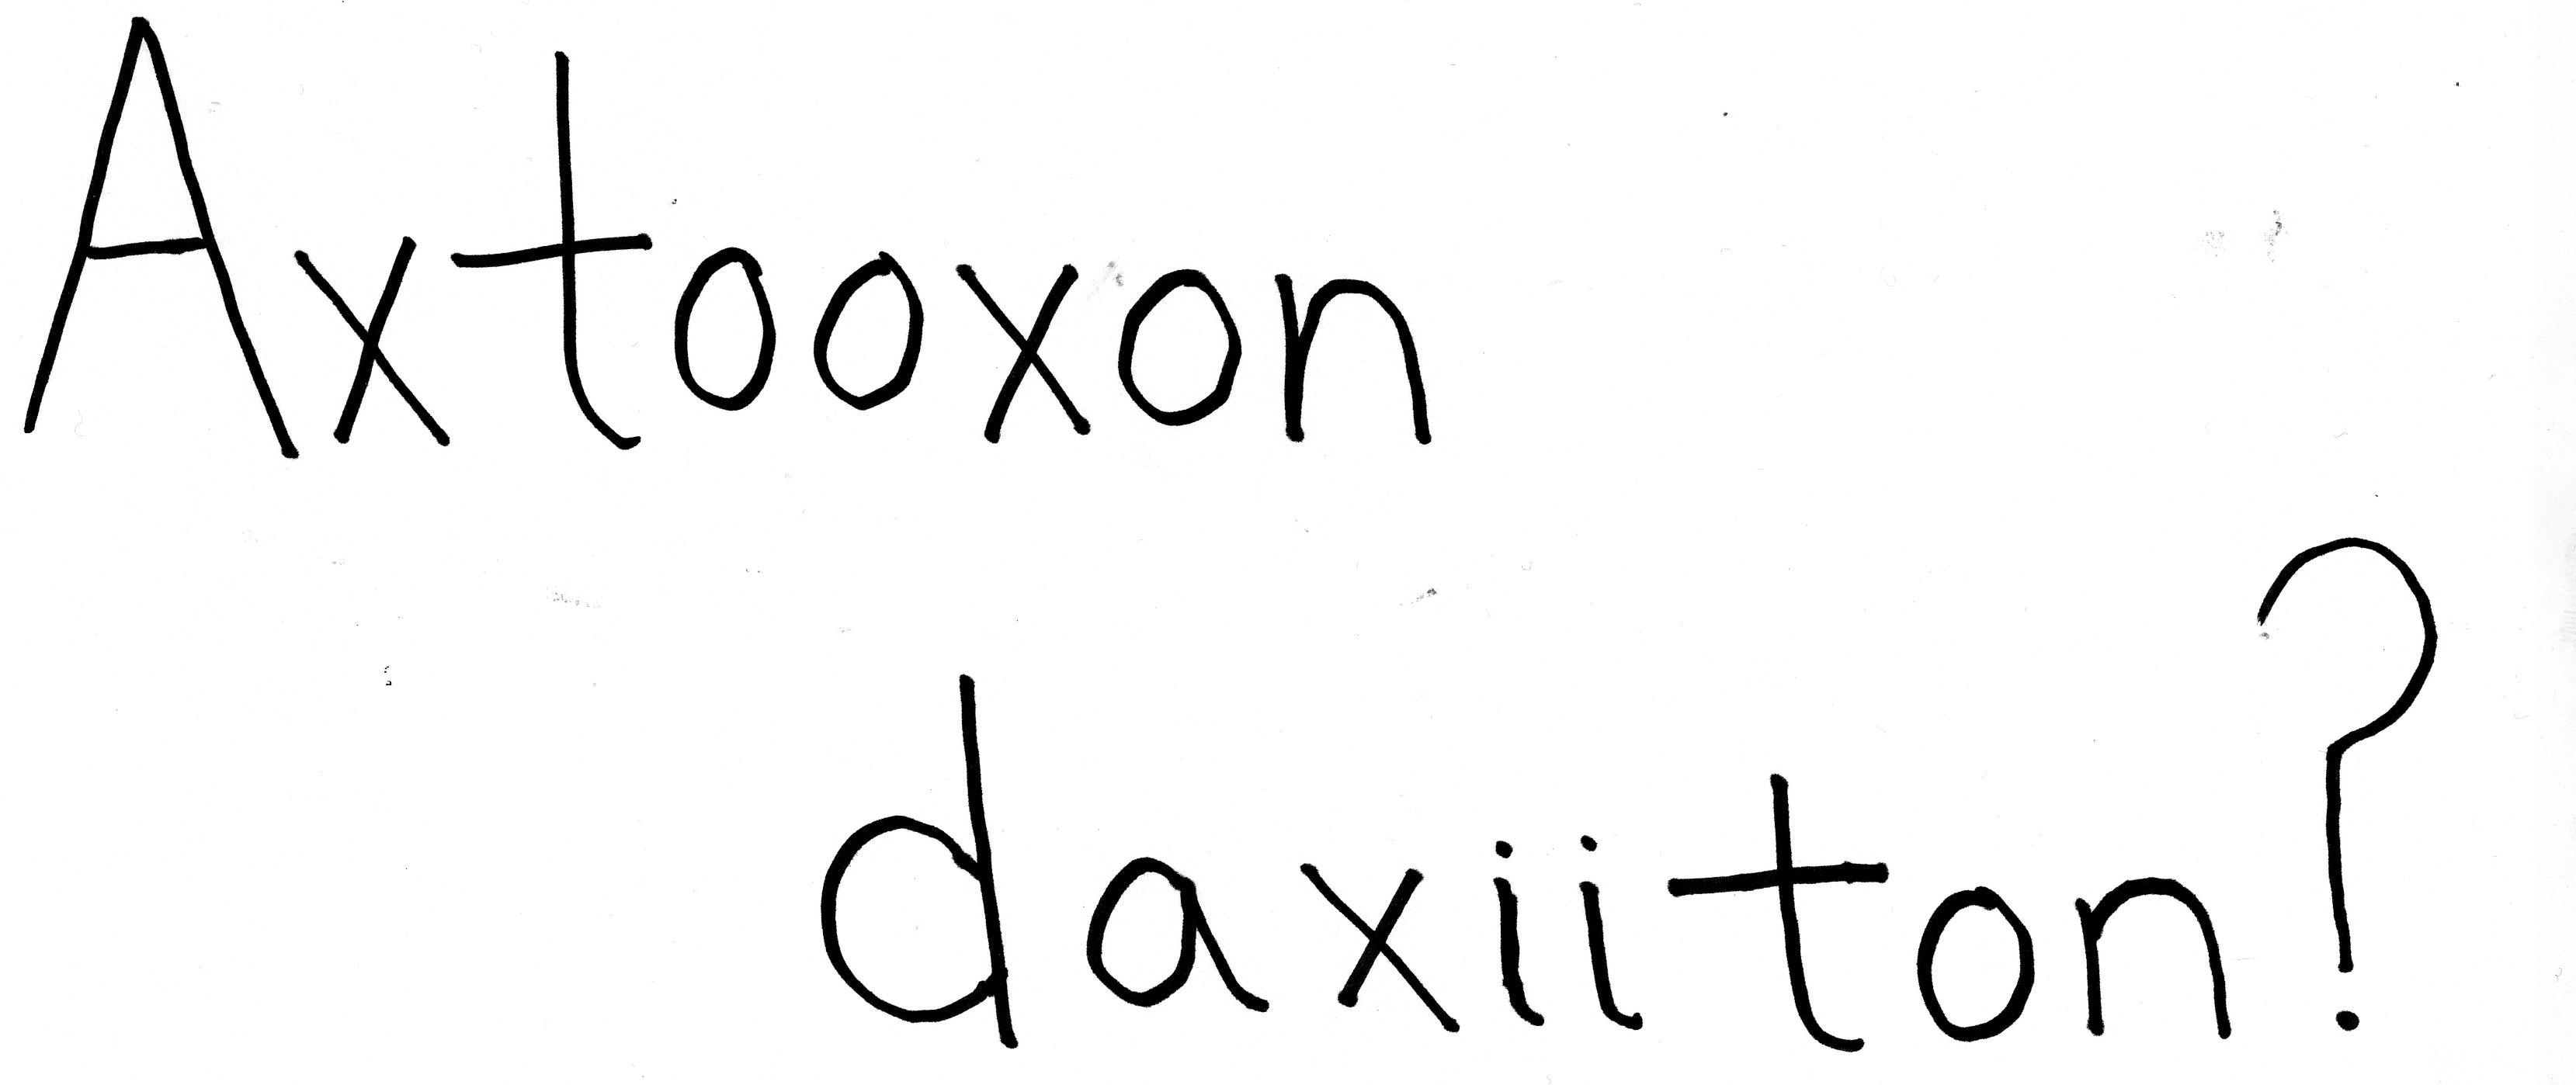 Axtooxon
daxiiton?